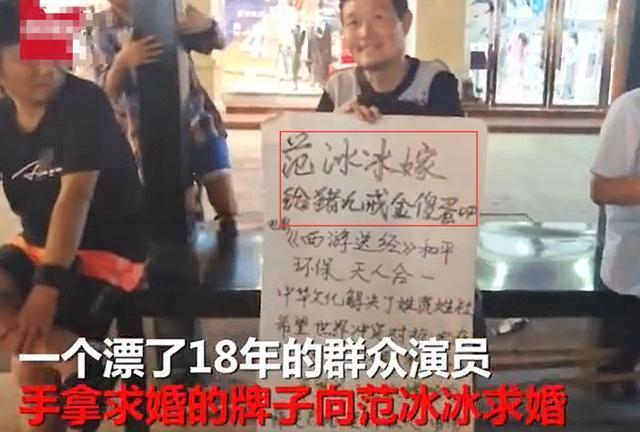 范冰冰嫁
给猪九戒金傻蛋吧
电影
《西游送经》和平
环保 天人合一
中华文化解决了姓资姓社
希望世界冲突对抗
一个漂了18年的群众演员
手拿求婚的牌子向范冰冰求婚